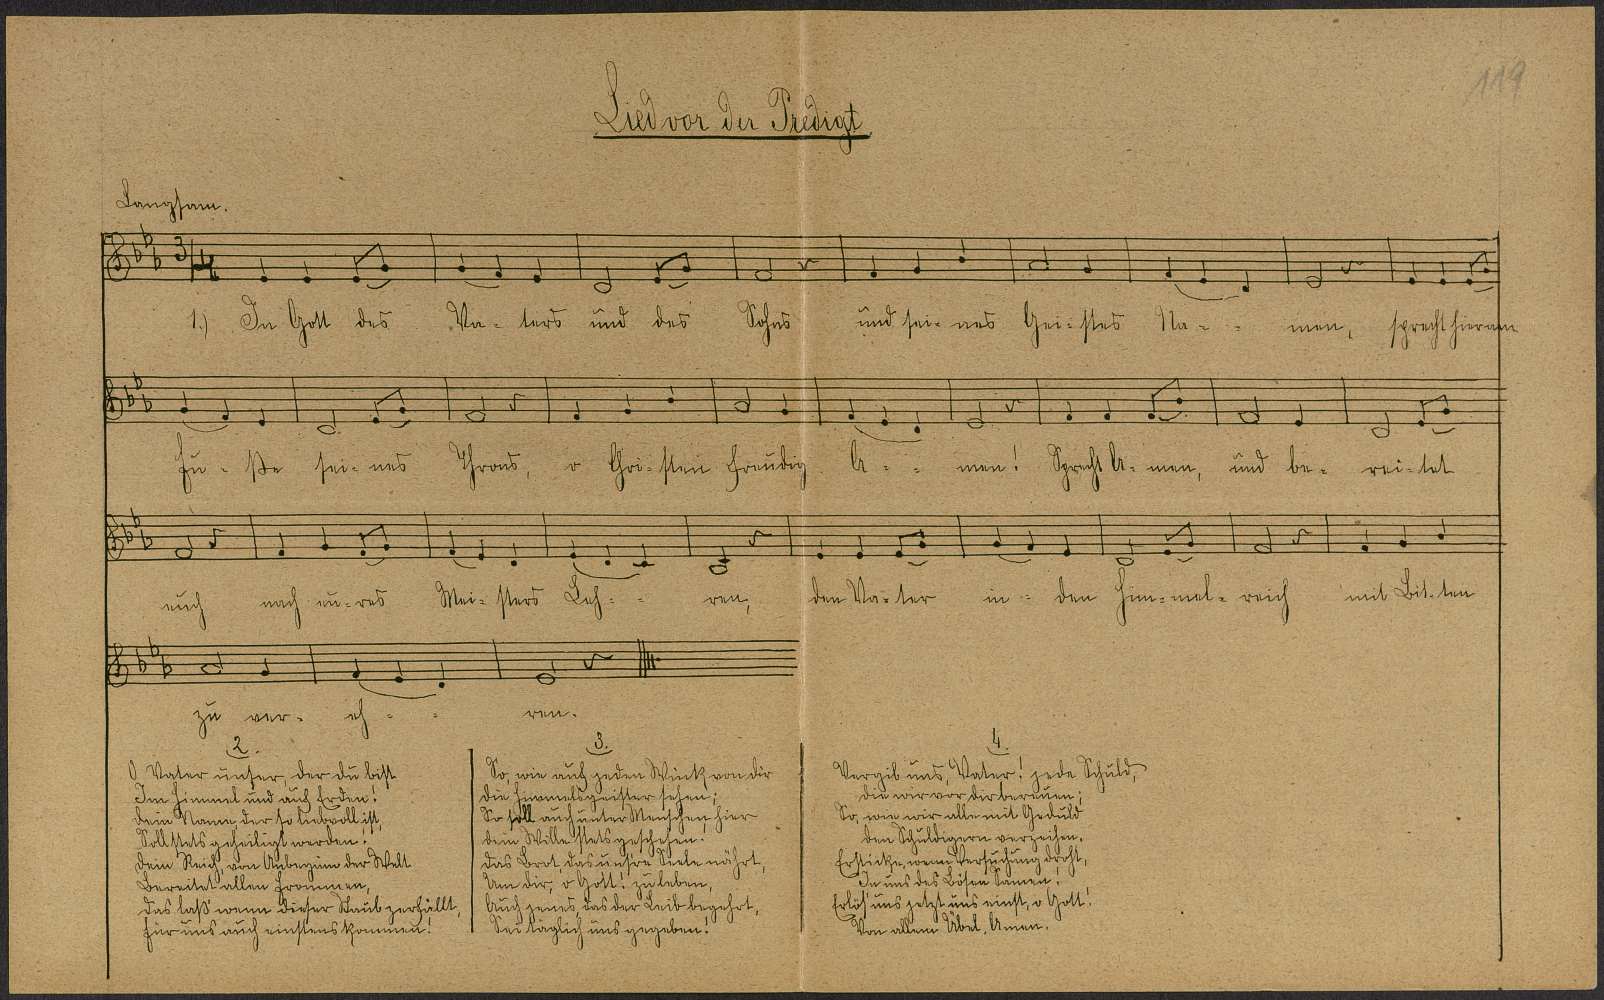 119
Lied vor der Predigt
Langsam.
1.) In Gott des Va- ters und des Sohns und sei- nes Gei- stes Na- - men, sprecht hier am
Fu- ße sei- nes Throns, o Chri- sten freudig A- - men! Sprecht A- men, und be- rei- tet
euch nach eu- res Mei- sters Leh- - ren, den Va- ter in - den Him- mel- reich mit Bit- ten
zu ver- eh- - ren.
2.
O Vater unser, der du bist
Im Himmel und auf Erden!
Dein Name, der so liebvoll ist,
Soll stets geheiligt werden!
Dein Reich, von Anbeginn der Welt
Bereitet allen Frommen,
Das laß wenn dieser Staub zerfällt,
Für uns auch einstens kommen!
3.
So, wie auf jeden Wink von dir
Die Himmelsgeister sehen;
So soll auch unter Menschen hier
Dein Wille stets geschehen.
Das Brot, das unsre Seele nährt,
Um dir, o Gott! zu leben,
Auch jenes, das der Leib begehrt,
Sei täglich uns gegeben!
4.
Vergib uns, Vater! jede Schuld,
Die wir vor dir bereuen;
So, wie wir alle mit Geduld
Den Schuldigern verzeihen.
Ersticke, wenn Versuchung droht,
In uns des Bösen Samen!
Erlös' uns jetzt uns einst, o Gott!
Von allem Übel. Amen.